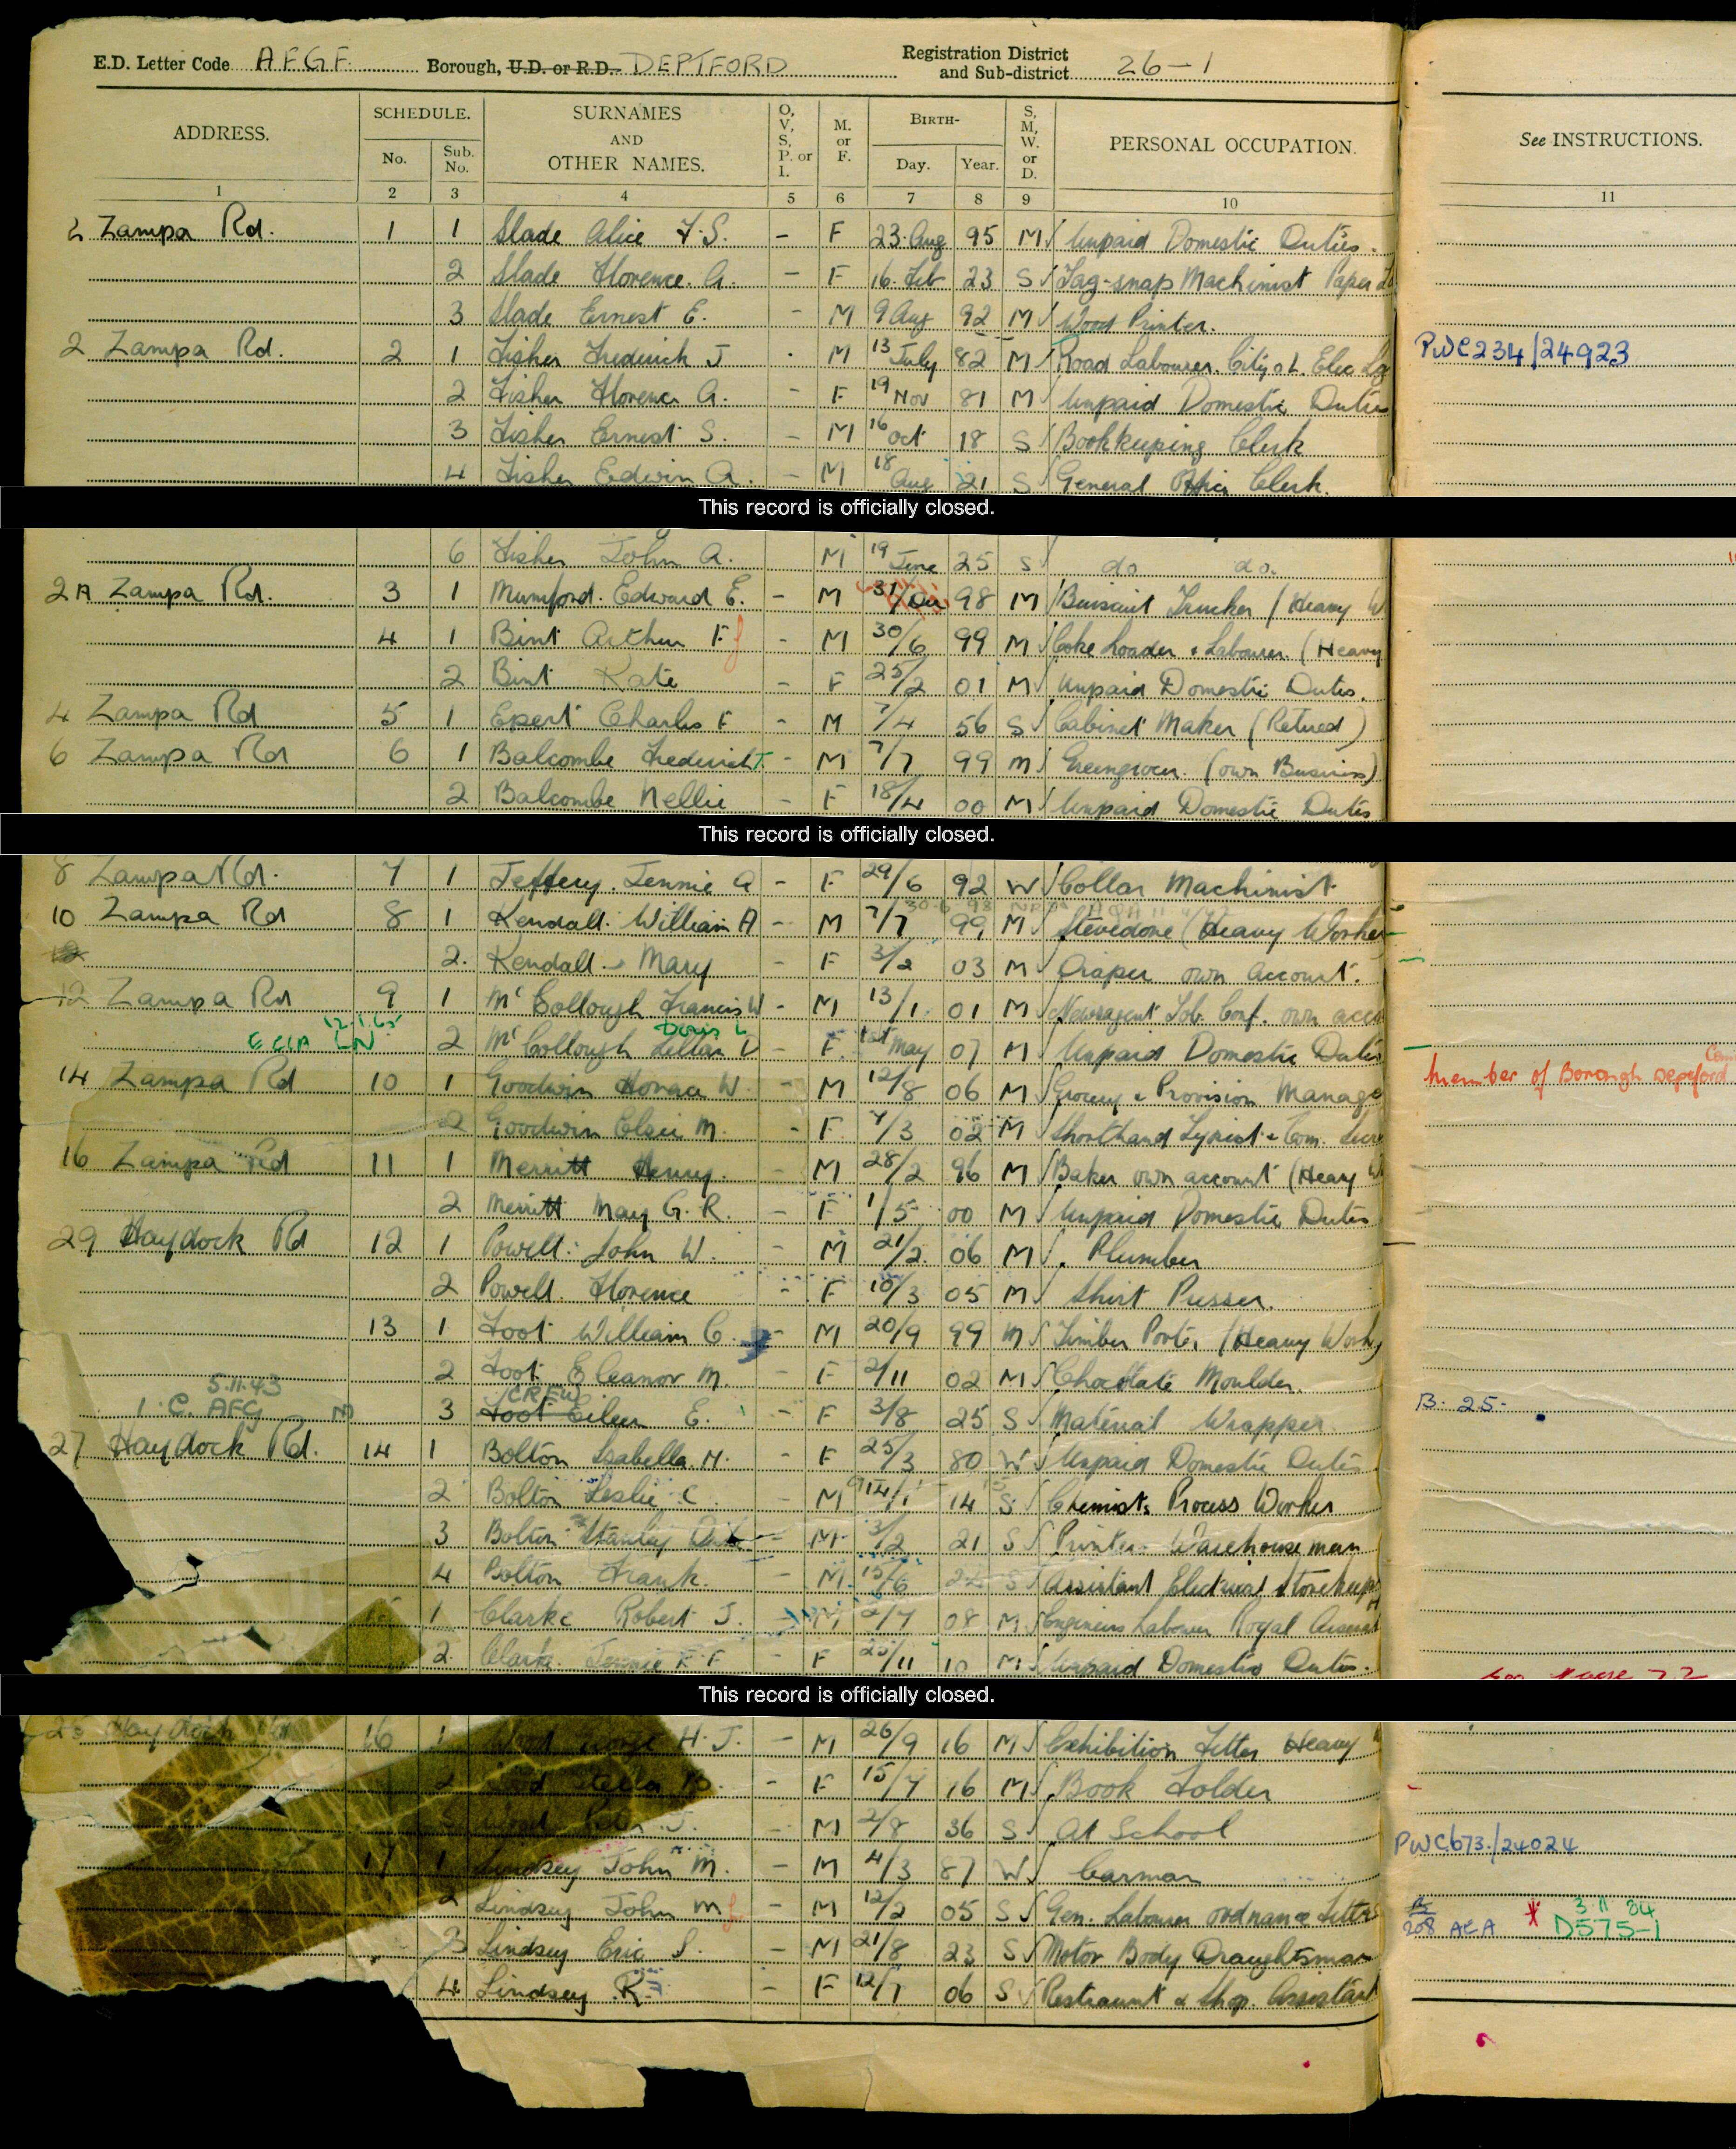 E.D. Letter Code AFGF Borough, U.D. or R.D. DEPTFORD Registration District and Sub-district 26-1
ADDRESS. SCHEDULE. No. Sub. No. SURNAMES AND OTHER NAMES. O, V, S, P. or I. M. or F. BIRTH- Day. Year. S, M, W. or D. PERSONAL OCCUPATION. See INSTRUCTIONS.
1 2 3 4 5 6 7 8 9 10 11
2 Zampa Rd. 1 1 Slade Alice F.S. - F 23 Aug 95 M Unpaid Domestic Duties.
2 Slade Florence. A. - F 16 Feb 23 S Tag-snap Machinist Paper
3 Slade Ernest E. - M 9 Aug 92 M Wood Printer.
2 Zampa Rd. 2 1 Fisher Frederick J. - M 13 July 82 M Road Labourer. City o L. Elec PWC234/24923
2 Fisher Florence A. - F 19 Nov 81 M Unpaid Domestic Duties
3 Fisher Ernest S. - M 16 Oct 18 S Bookkeeping Clerk
4 Fisher Edwin A. - M 18 Aug 21 S General Office Clerk.
This record is officially closed.
6 Fisher John A. M 19 June 25 S do do.
2A Zampa Rd. 3 1 Mumford. Edward E. - M 31/ 98 M Trucker (Heavy W
4 1 Bint Arthur F - M 30/6 99 M Coke Loader & Labourer. (Heavy
2 Bint Kate - F 25/2 01 M Unpaid Domestic Duties.
4 Zampa Rd 5 1 Epert Charles F - M 7/4 56 S Cabinet Maker (Retired)
6 Zampa Rd 6 1 Balcombe Frederick T - M 7/7 99 M Greengrocer. (own Business)
2 Balcombe Nellie - F 18/4 00 M Unpaid Domestic Duties
This record is officially closed.
8 Zampa Rd. 7 1 Jeffery. Jennie A - F 29/6 92 W Collar Machinist
10 Zampa Rd 8 1 Kendall. William A - M 7/7 99 M Stevedore (Heavy Worker
2. Kendall - Mary - F 3/2 03 M Draper own account.
12 Zampa Rd 9 1 McCollough Francis W - M 13/1 01 M Newsagent Tob. Conf. own acco
12.1.65 Doris L
ECIA LN 2 McCollough Lillian D - F 1st May 07 M Unpaid Domestic Duties
14 Zampa Rd 10 1 Goodwin Horace W. - M 12/8 06 M Grocery & Provision Manage Member of Borough Deptford
2 Goodwin Elsie M. - F 7/3 02 M Shorthand Typist & Com.
16 Zampa Rd 11 1 Merritt Henry. - M 28/2 96 M Baker own account (Heavy W
2 Merritt May G. R. - F 1/5 00 M Unpaid Domestic Duties
29 Haydock Rd 12 1 Powell. John W. - M 21/2. 06 M Plumber
2 Powell. Florence - F 10/3 05 M Shirt Presser.
13 1 Foot William C. - M 20/9 99 M Timber Porter (Heavy Work
2 Foot Eleanor M. - F 2/11 02 M Chocolate Moulder.
5.11.43 CREW
1. C. AFG 3 Foot Eileen E. - F 3/8 25 S Material Wrapper. B. 25.
27 Haydock Rd. 14 1 Bolton Isabella H. - F 25/3 80 W Unpaid Domestic Duties
2 Bolton Leslie C. - M 14/1 14 S Chemists Process Worker
3 Bolton Stanley - M 3/2 21 S Printers Warehouseman
4 Bolton Frank. - M 15/6 S Assistant Electrical Storekeep
1 Clarke Robert J. - M 2/7 08 M Engineers Labourer Royal Arsenal
2. Clarke. Jennie F. F - F 25/11 10 M Unpaid Domestic Duties.
This record is officially closed.
25 Haydock Rd 16 1 H. J. - M 26/9 16 M Exhibition Fitter Heavy
2 Stella - F 15/7 16 M Book Folder
J. - M 2/8 36 S At School
17 1 Lindsey John M. - M 4/3 87 W Carman PWC673/24024
2 Lindsey John M - M 12/2 05 S Gen. Labourer Ordnance Fitters 208 AEA * 3.11.84 D575-1
3 Lindsey Eric S. - M 21/8 23 S Motor Body Draughtsman
4 Lindsey R - F 12/7 06 S Restraunt & Shop. Assistant